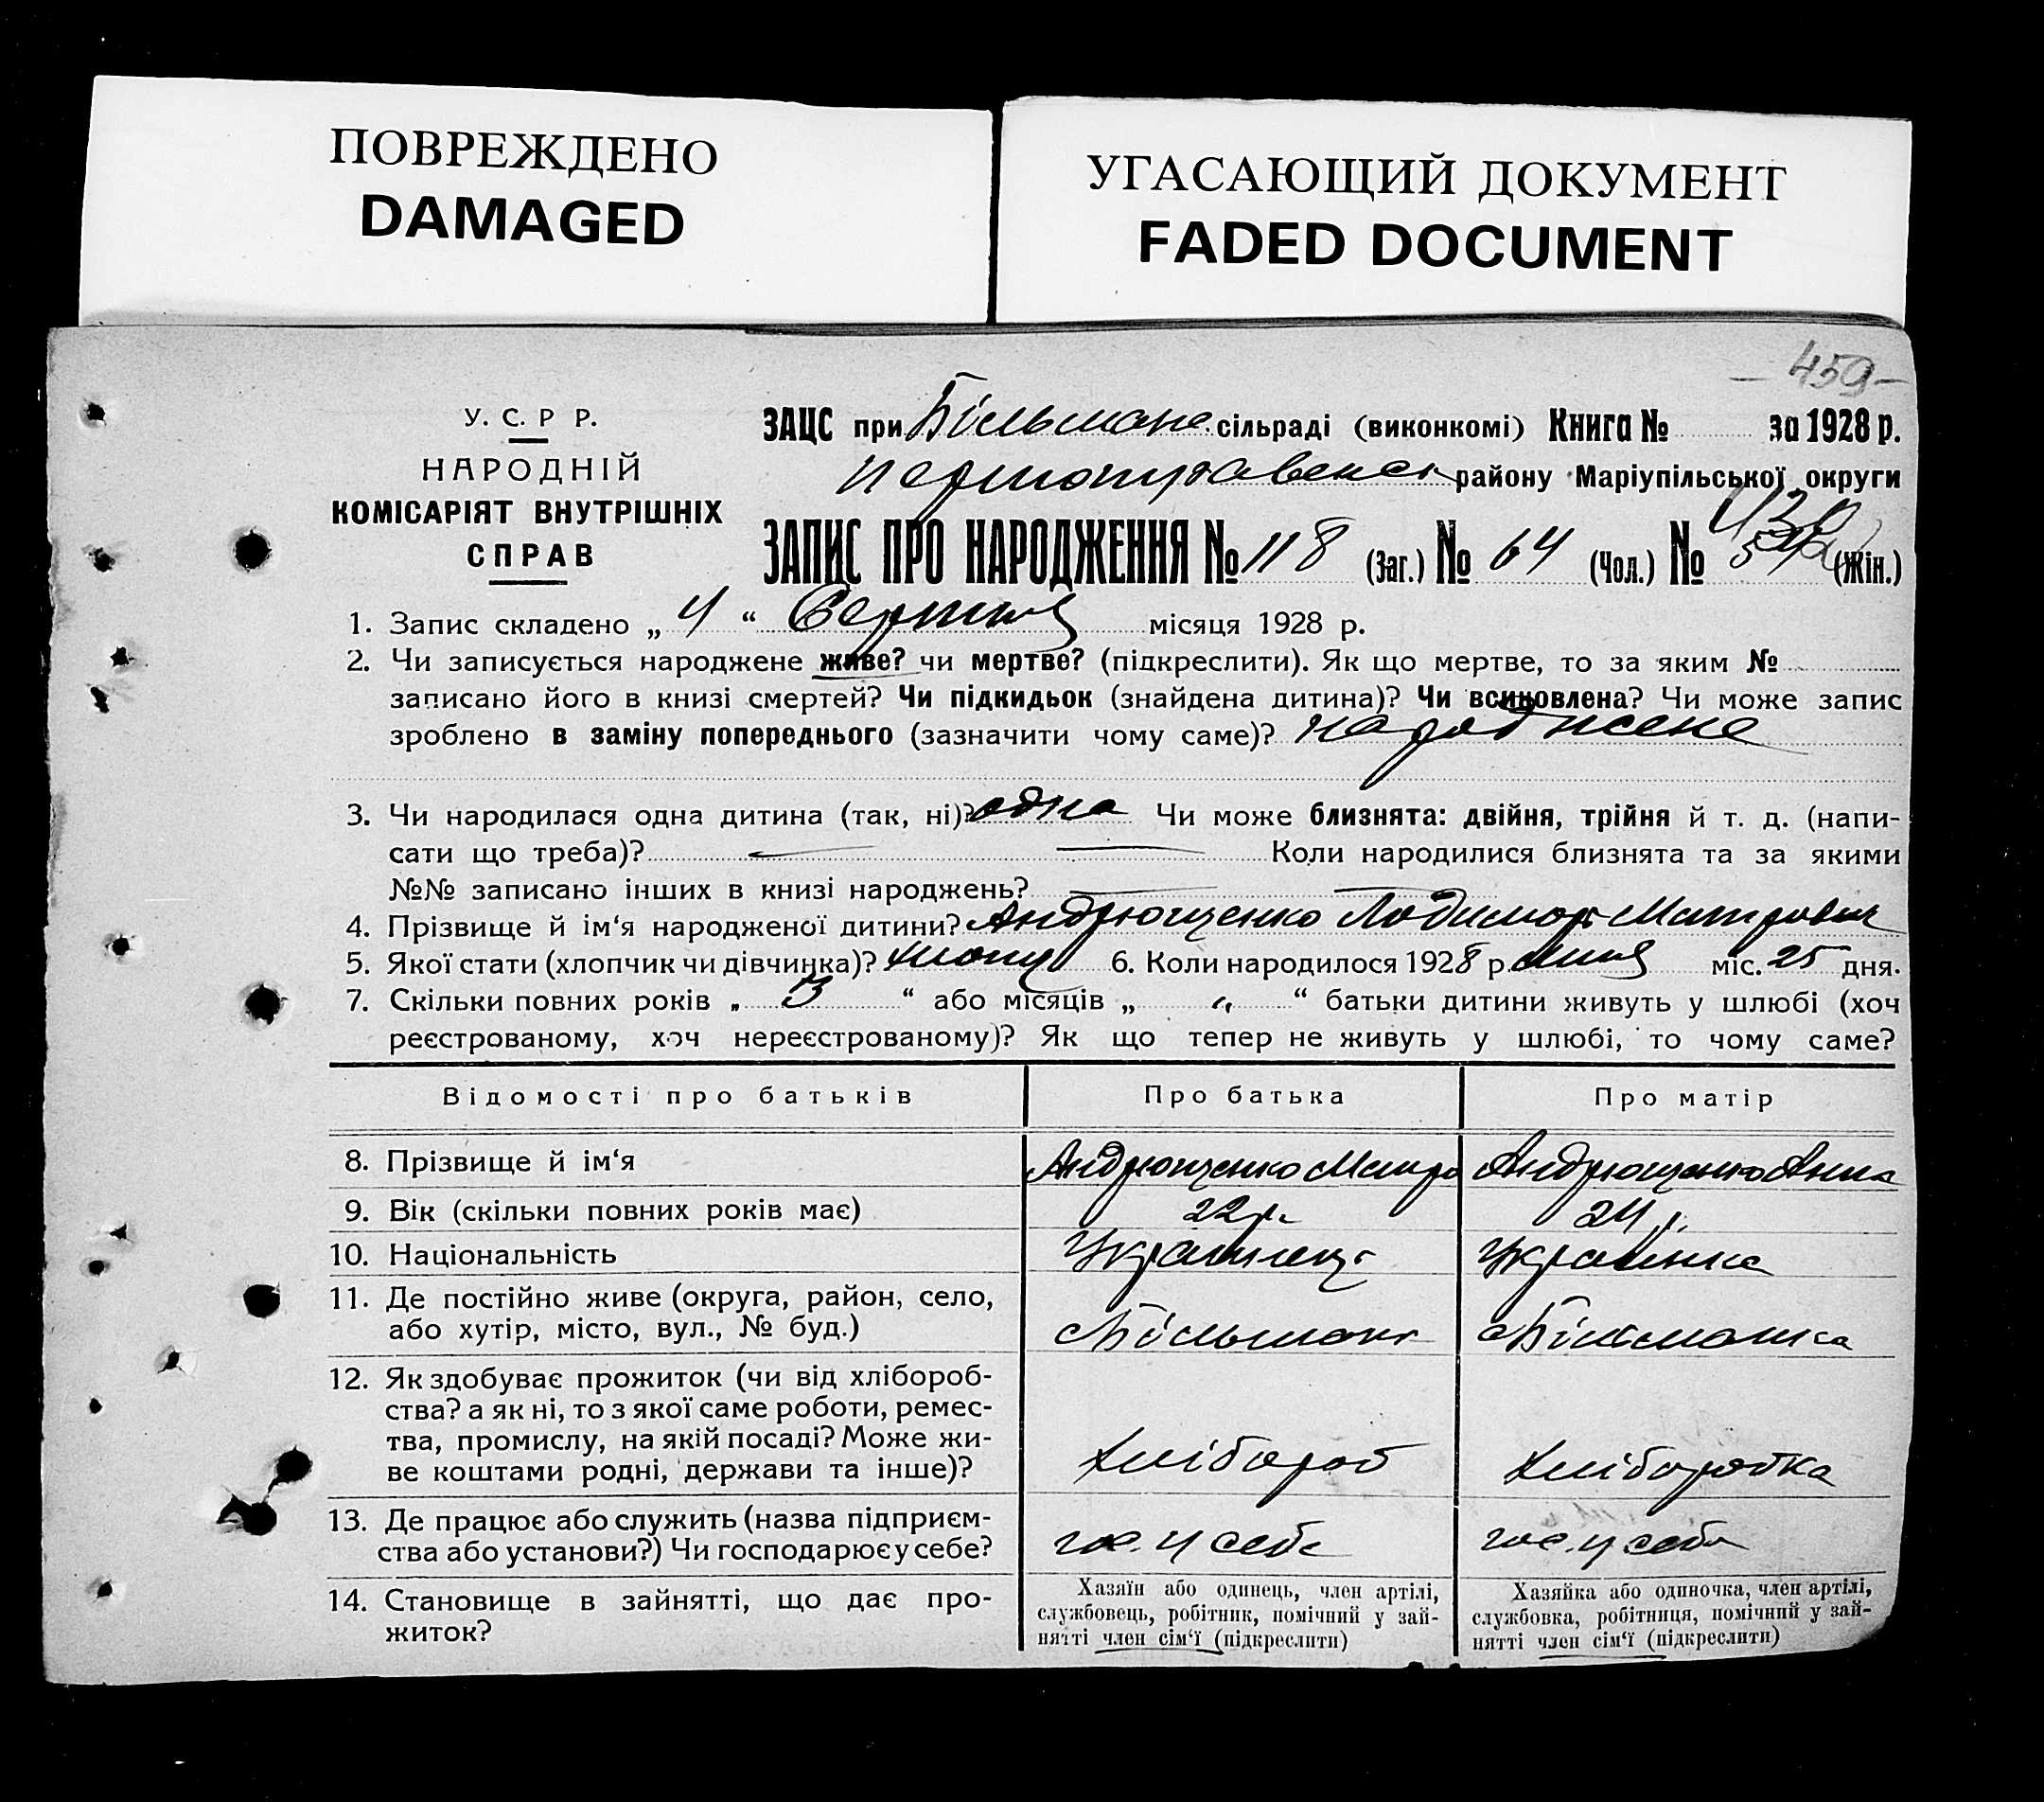 ПОВРЕЖДЕНО
DAMAGED
УГАСАЮЩИЙ ДОКУМЕНТ
FADED DOCUMENT
- 459 -
У. С. Р Р.
НАРОДНІЙ
КОМІСАРІЯТ ВНУТРІШНІХ
СПРАВ
ЗАЦС при Більмане. сільраді (виконкомі) Книга № за 1928 р.
району Маріупільської округи
ЗАПИС ПРО НАРОДЖЕННЯ № 118 (Заг.) № 64 (Чол.) № (Жін.)
1. Запис складено „ 4 “ Серпня місяця 1928 р.
2. Чи записується народжене живе? чи мертве? (підкреслити). Як що мертве, то за яким №
записано його в книзі смертей? Чи підкидьок (знайдена дитина)? Чи всиновлена? Чи може запис
зроблено в заміну попереднього (зазначити чому саме)? народжене
3. Чи народилася одна дитина (так, ні)? одна Чи може близнята: двійня, трійня й т. д. (напи-
сати що треба)? — — Коли народилися близнята та за якими
№№ записано інших в книзі народжень? — —
4. Прізвище й ім‘я народженої дитини? Андрющенко
5. Якої стати (хлопчик чи дівчинка)? хлопц 6. Коли народилося 1928 р. липня міс. 25 дня.
7. Скільки повних років „ 3 “ або місяців „ „ “ батьки дитини живуть у шлюбі (хоч
реєстрованому, хоч нереєстрованому)? Як що тепер не живуть у шлюбі, то чому саме?
Відомості про батьків Про батька Про матір
8. Прізвище й ім‘я Андрющенко Митро Андрющенко Анна
9. Вік (скільки повних років має) 22 р. 24 р.
10. Національність Українець Українка
11. Де постійно живе (округа, район, село,
або хутір, місто, вул., № буд.) с Більманк с Більманка
12. Як здобуває прожиток (чи від хлібороб-
ства? а як ні, то з якої саме роботи, ремес-
тва, промислу, на якій посаді? Може жи-
ве коштами родні, держави та інше)? Хлібороб Хліборобка
13. Де працює або служить (назва підприєм-
ства або установи?) Чи господарює у себе? гос. у себе гос. у себе
14. Становище в зайнятті, що дає про-
житок?
Хазяїн або одинець, член артілі,
службовець, робітник, помічний у зай-
нятті член сім‘ї (підкреслити)
Хазяйка або одиночка, член артілі,
службовка, робітниця, помічний у зай-
нятті член сім‘ї (підкреслити)